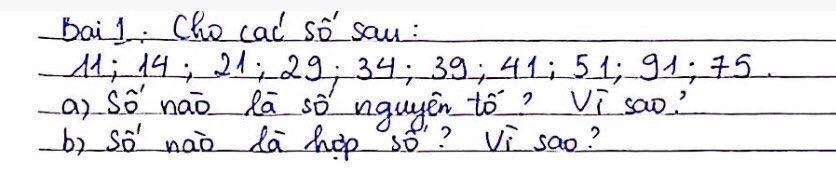 Bài 1: Cho các số sau:
11; 14; 21; 29; 34; 39; 41; 51; 91; 75.
a) Số nào là số nguyên tố? Vì sao?
b) Số nào là hợp số? Vì sao?